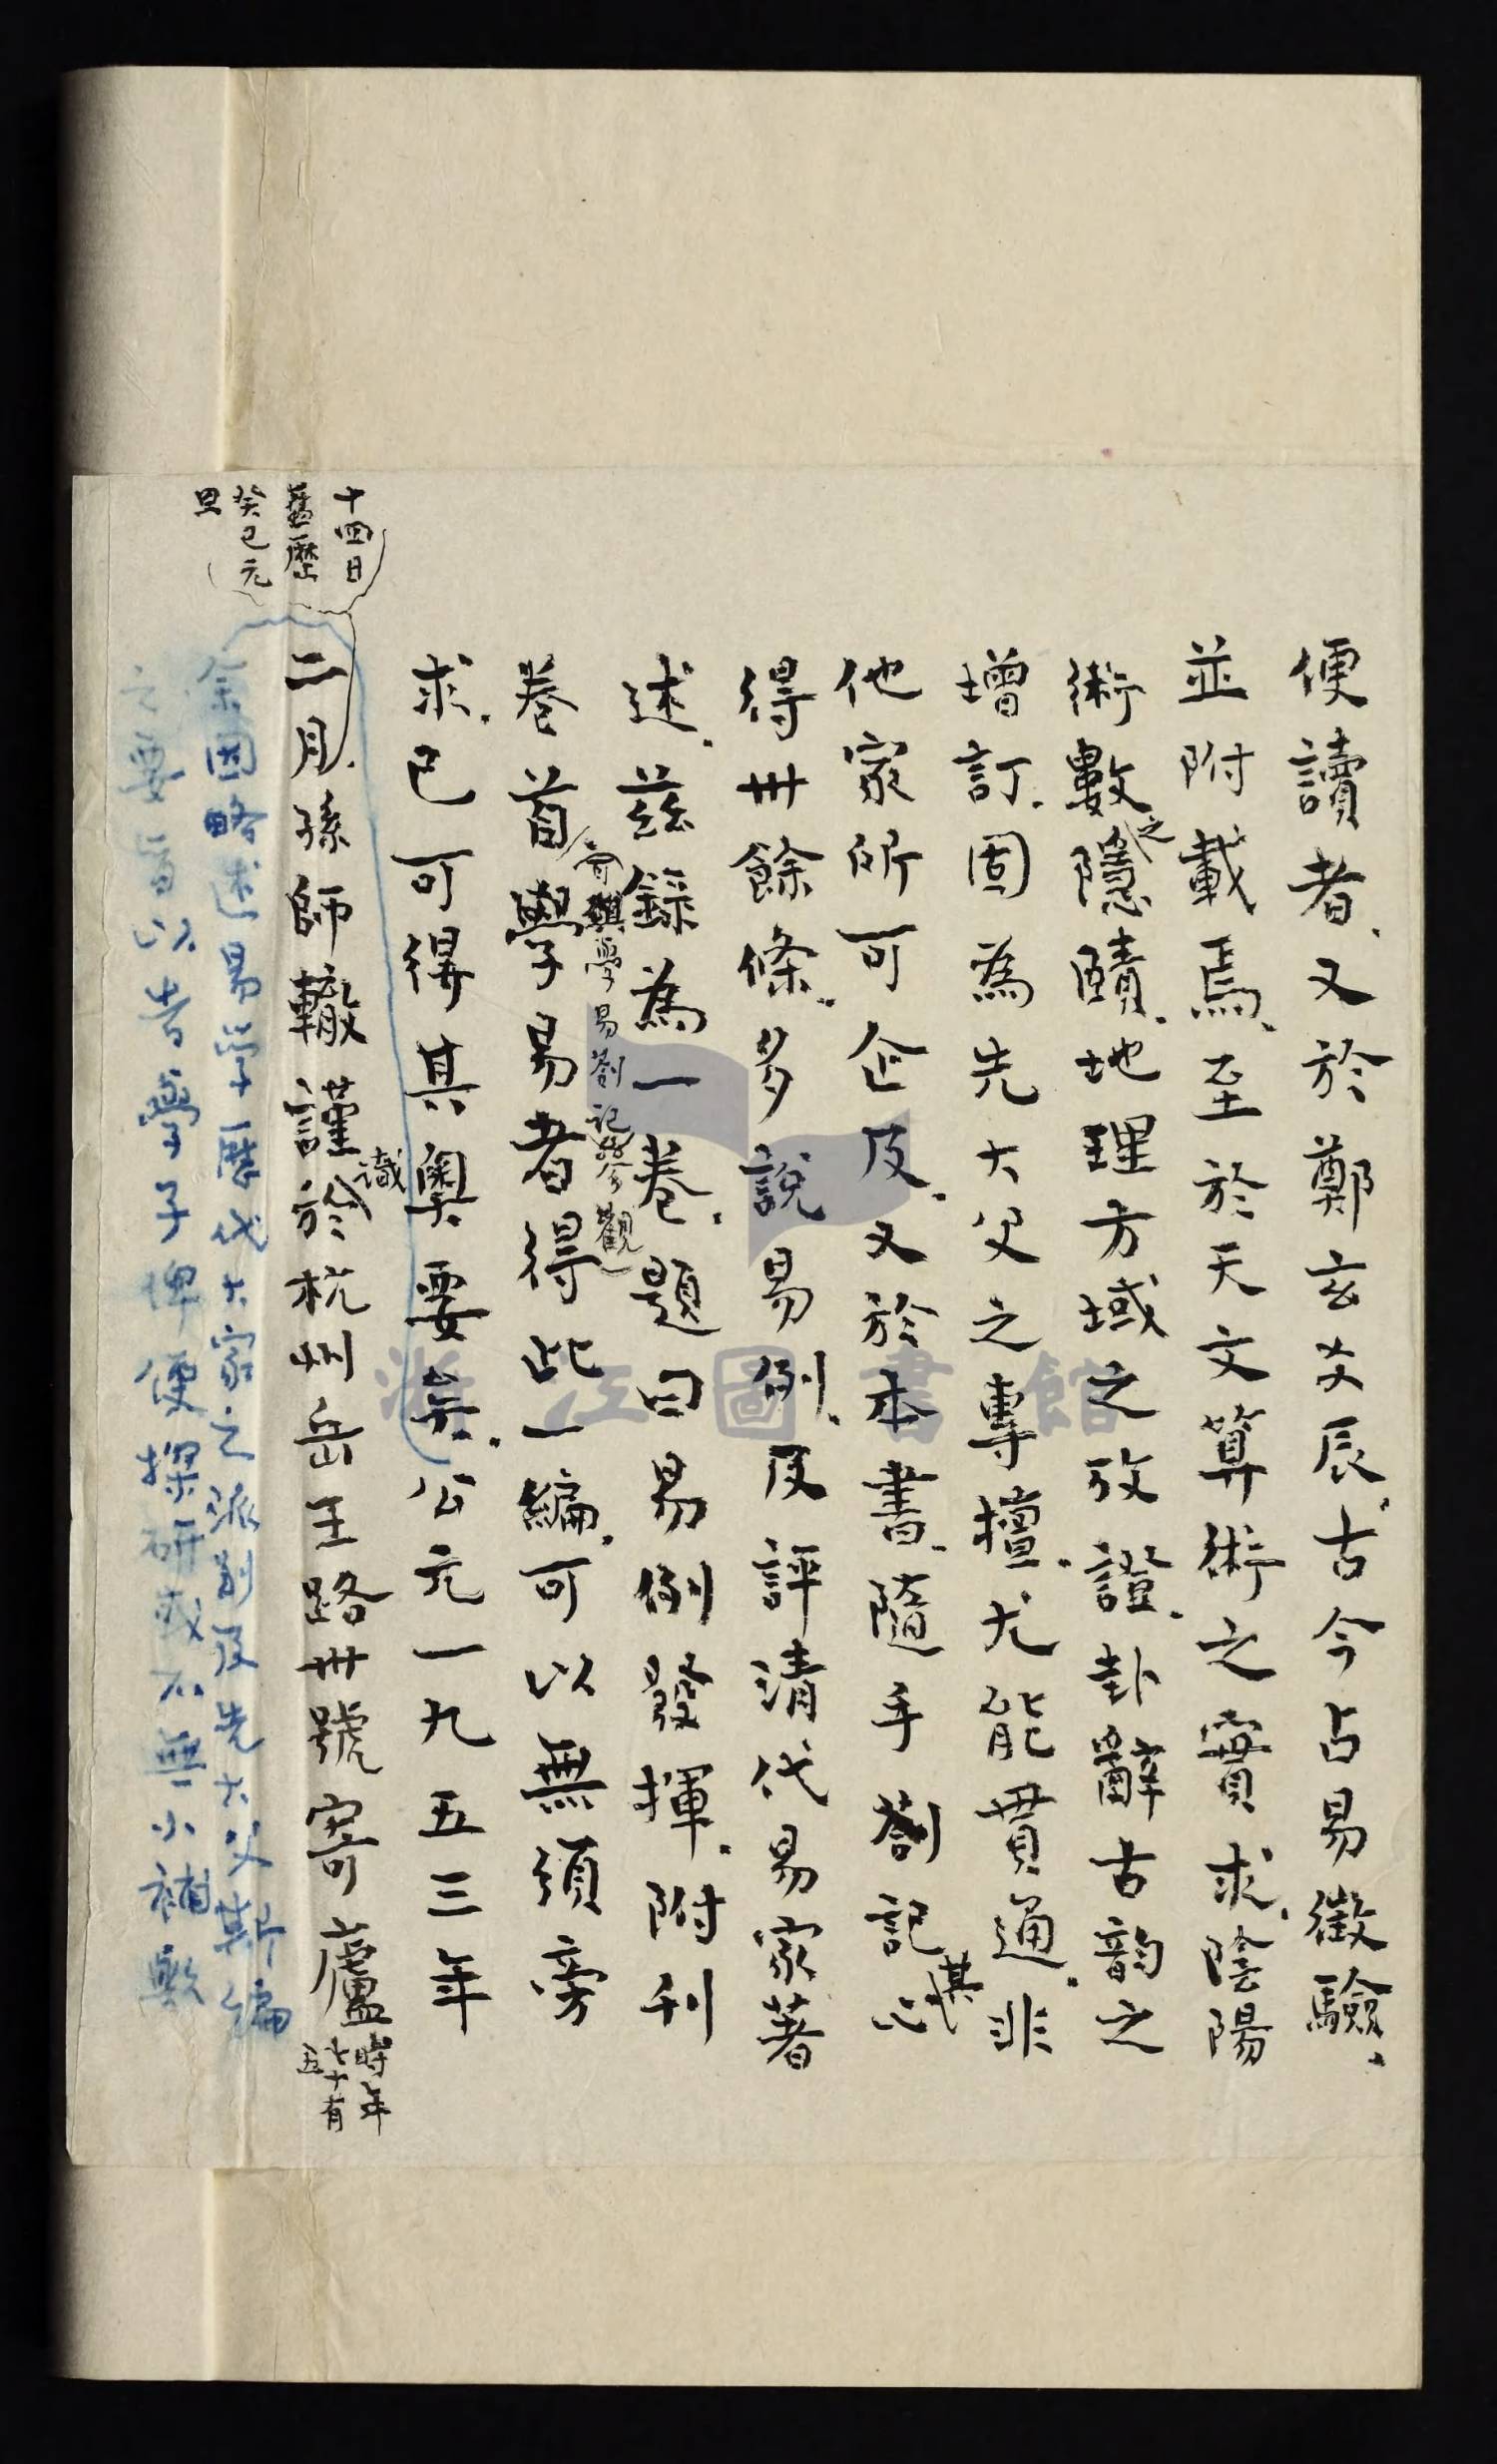 便讀者、又於鄭玄爻辰、古今占易徵驗、
並附載焉、至於天文算術之實求、陰陽
術數之隱賾、地理方域之攷證、卦辭古韵之
增訂、固為先大父之專擅、尤能貫通、非
他家所可企及、又於本書、隨手劄記其心
得卅餘條、多說易例、及評清代易家著
述、茲錄為一卷、題曰易例發揮、附刊
卷首、學易者得此一編、可以無須旁
可與學易劄記參觀
求、已可得其奧要矣、公元一九五三年
二月、孫師轍謹識於杭州岳王路卅號寄廬
時年
七十有
五
十四日
舊歷
癸巳元
旦
余因略述易學歷代大家之派別及先大父斯編
之要旨以告學子俾便探研或不無小補歟
浙江圖書館